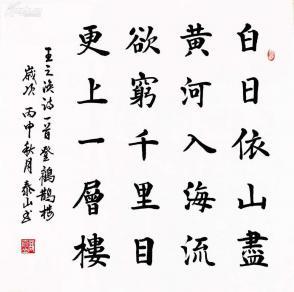 白日依山盡
黄河入海流
欲窮千里目
更上一層樓
王之涣诗一首登鸛鹊楼
歲次丙申秋月泰山书